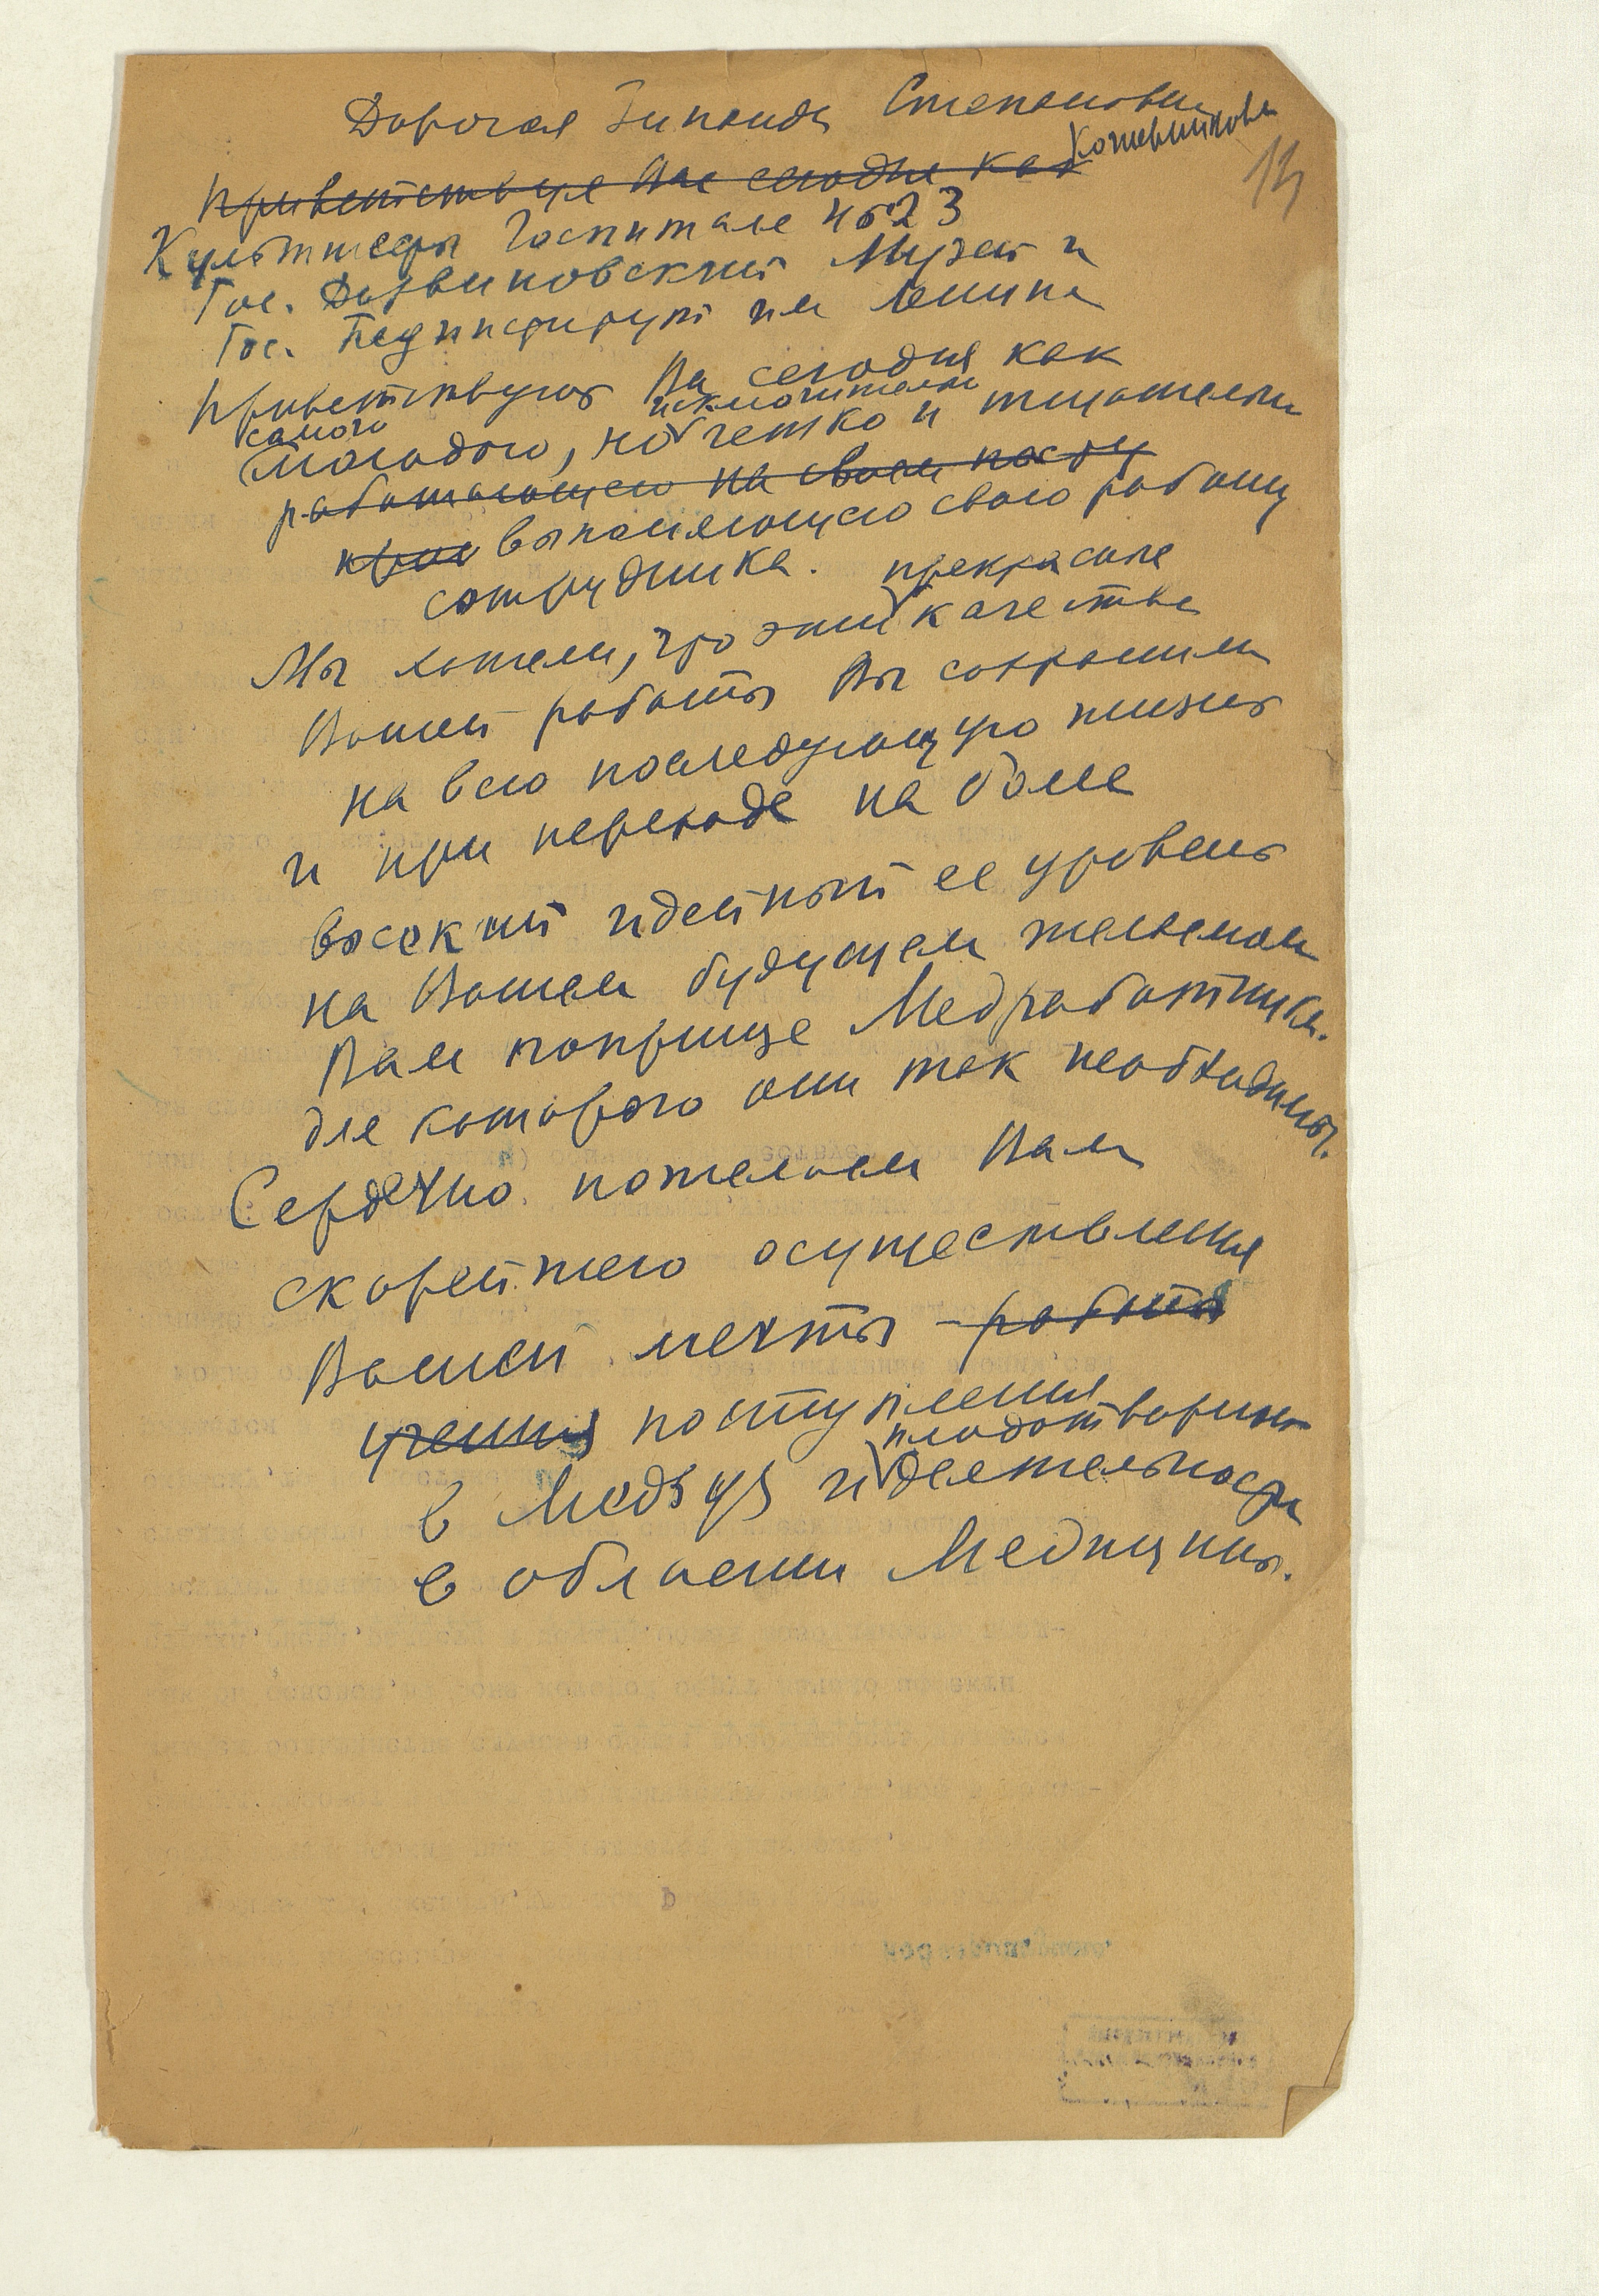 Дорогая Зинаида Степановна
Кожевникова
13
Приветствуя Вас сегодня как
Культшефы Госпиталя 4623
Гос. Дарвиновский Музей и
Гос. Пединститут им Ленина
Приветствуют Вас сегодня как
самого исключительно
молодого, но четко и тщательно
работающего на своем посту
выполняющего свою работу
сотрудника. прекрасные
Мы хотели, что эти качества
Вашей работы Вы сохранили
на всю последующую жизнь
и при переходе на более
высокий идейный ее уровень
на Вашем будущем желаемом
Вам поприще Медработника.
для которого они так необходимы.
Сердечно пожелаем Вам
скорейшего осуществления
Вашей мечты – работы
учения поступления
плодотворной
в Медвуз и деятельности
в области Медицины.